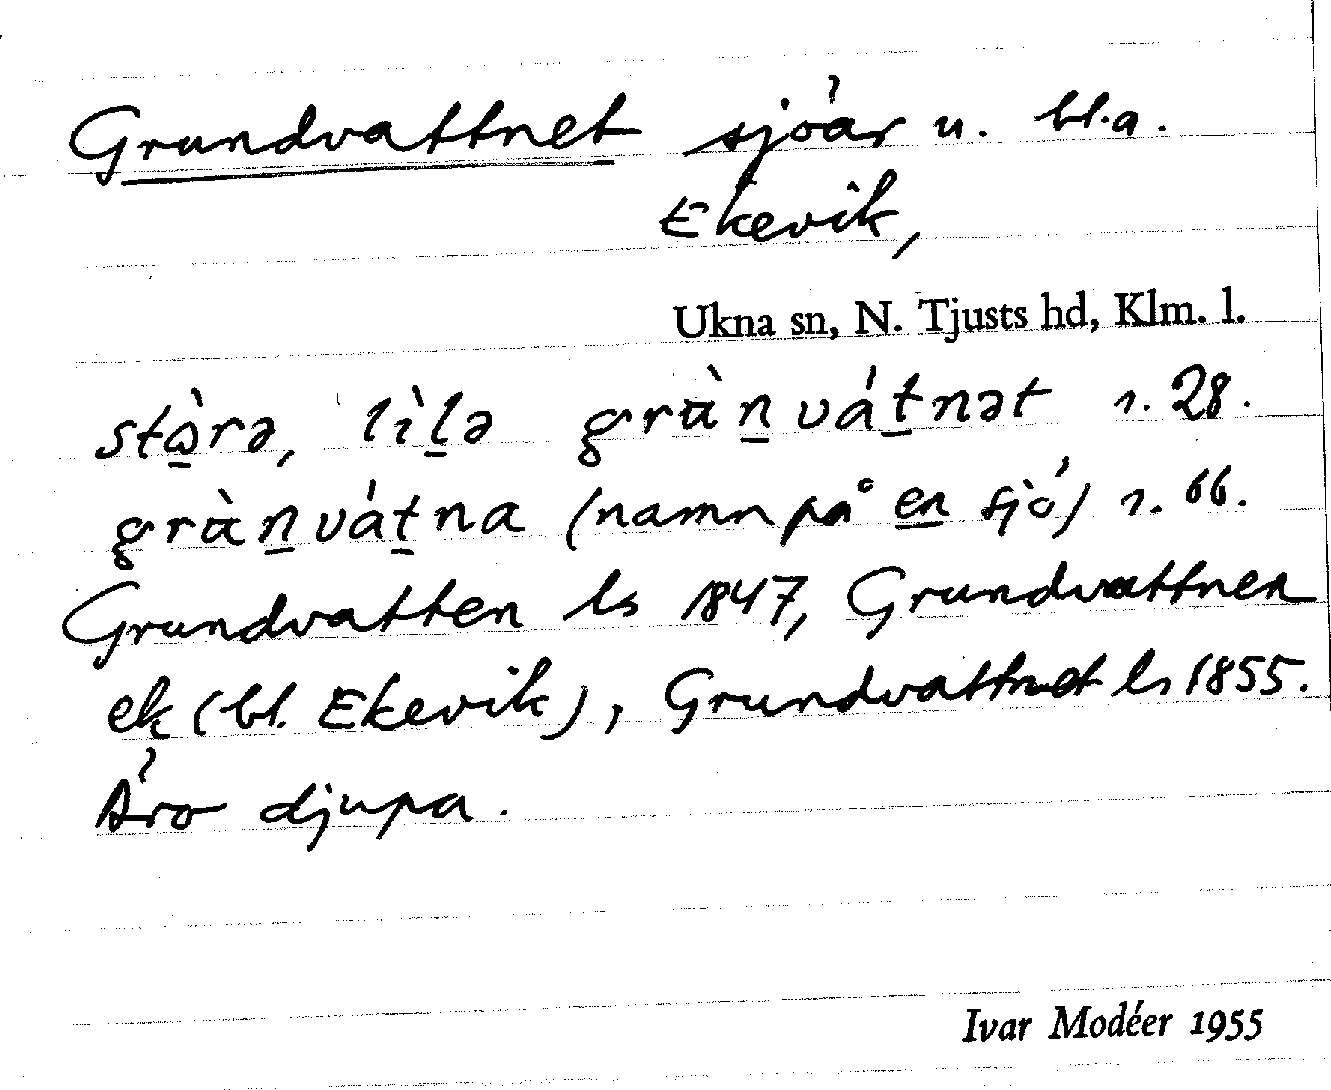 Grundvattnet sjöar u. bl.a.
Ekevik,
Ukna sn, N. Tjusts hd, Klm. l.
stɷ̀rə, lìlə grànvátnət s. 28.
grànvátna (namn på en sjö) s. 66.
Grundvatten ls 1847, Grundvattnen
ek (bl. Ekevik), Grundvattnet ls 1855.
Äro djupa.
Ivar Modéer 1955